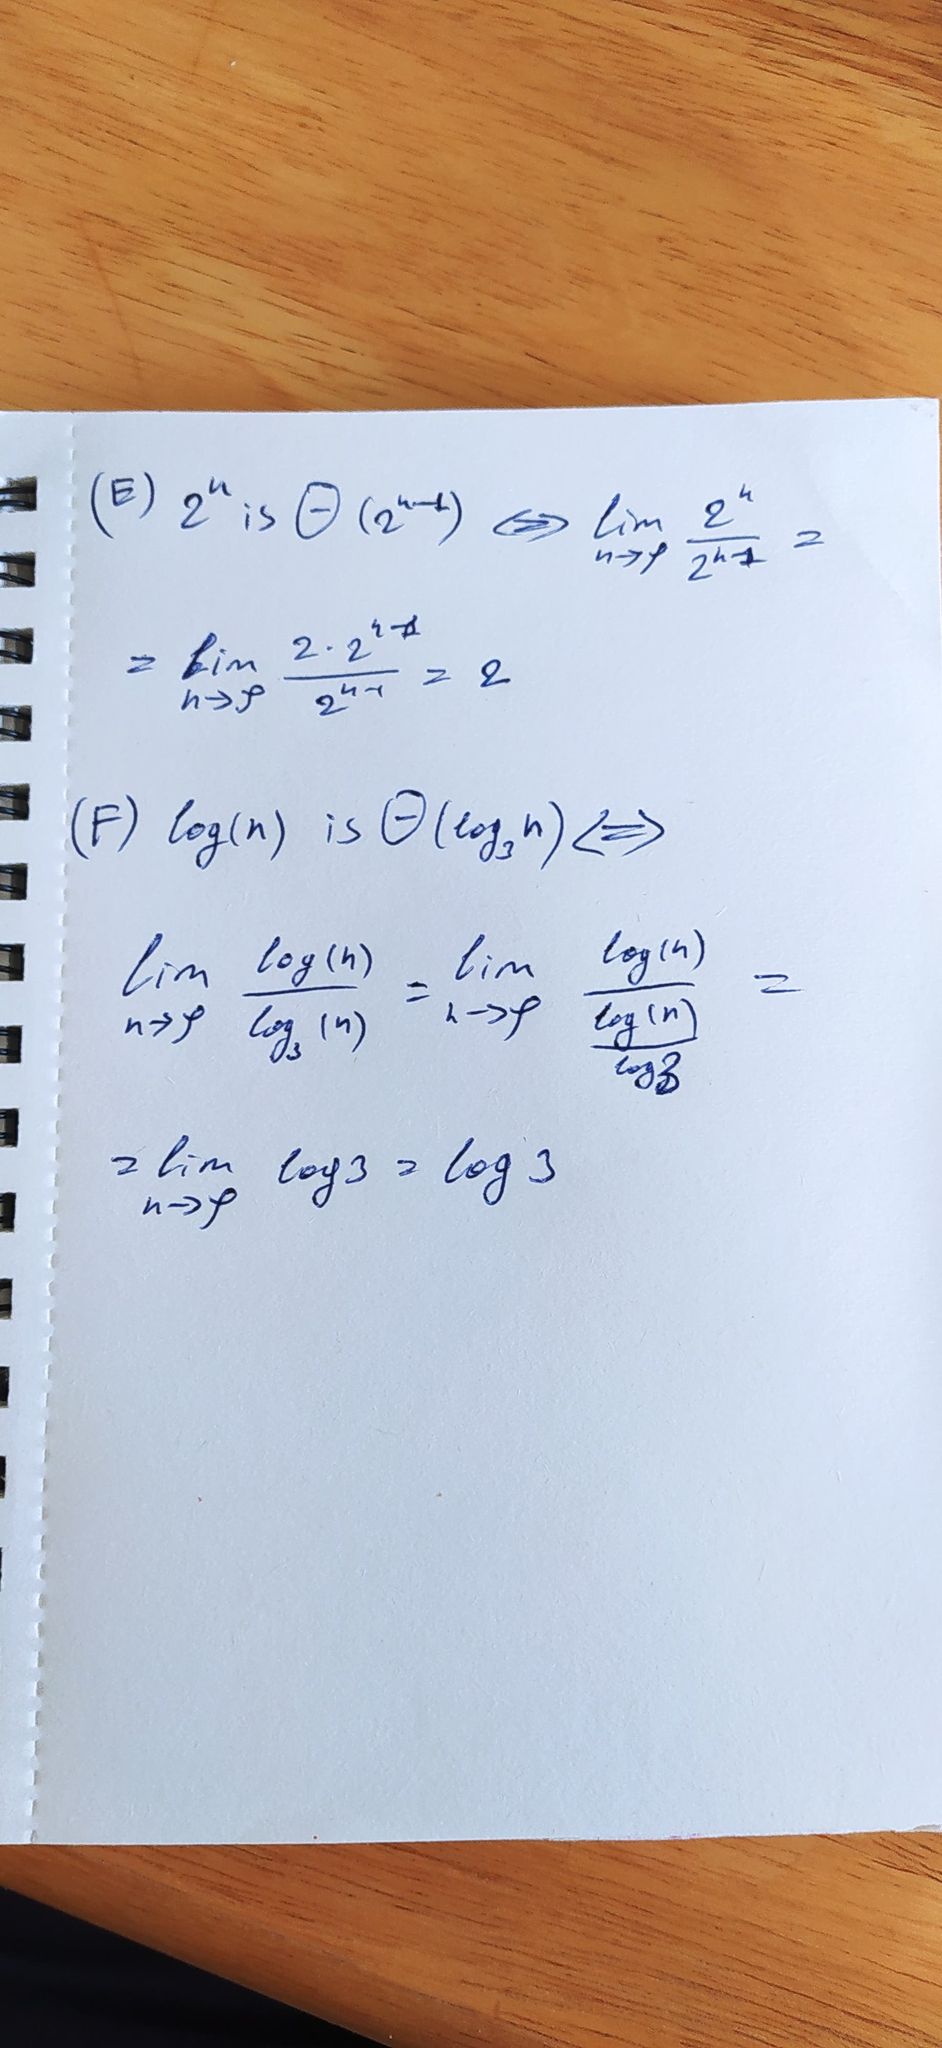 (E) 2ⁿ is Θ(2ⁿ⁻¹) ⟺ lim n→∞ 2ⁿ/2ⁿ⁻¹ =
= lim n→∞ 2·2ⁿ⁻¹/2ⁿ⁻¹ = 2
(F) log(n) is Θ(log₃n) ⟺
lim n→∞ log(n)/log₃(n) = lim n→∞ log(n)/(log(n)/log3) =
= lim n→∞ log3 = log 3